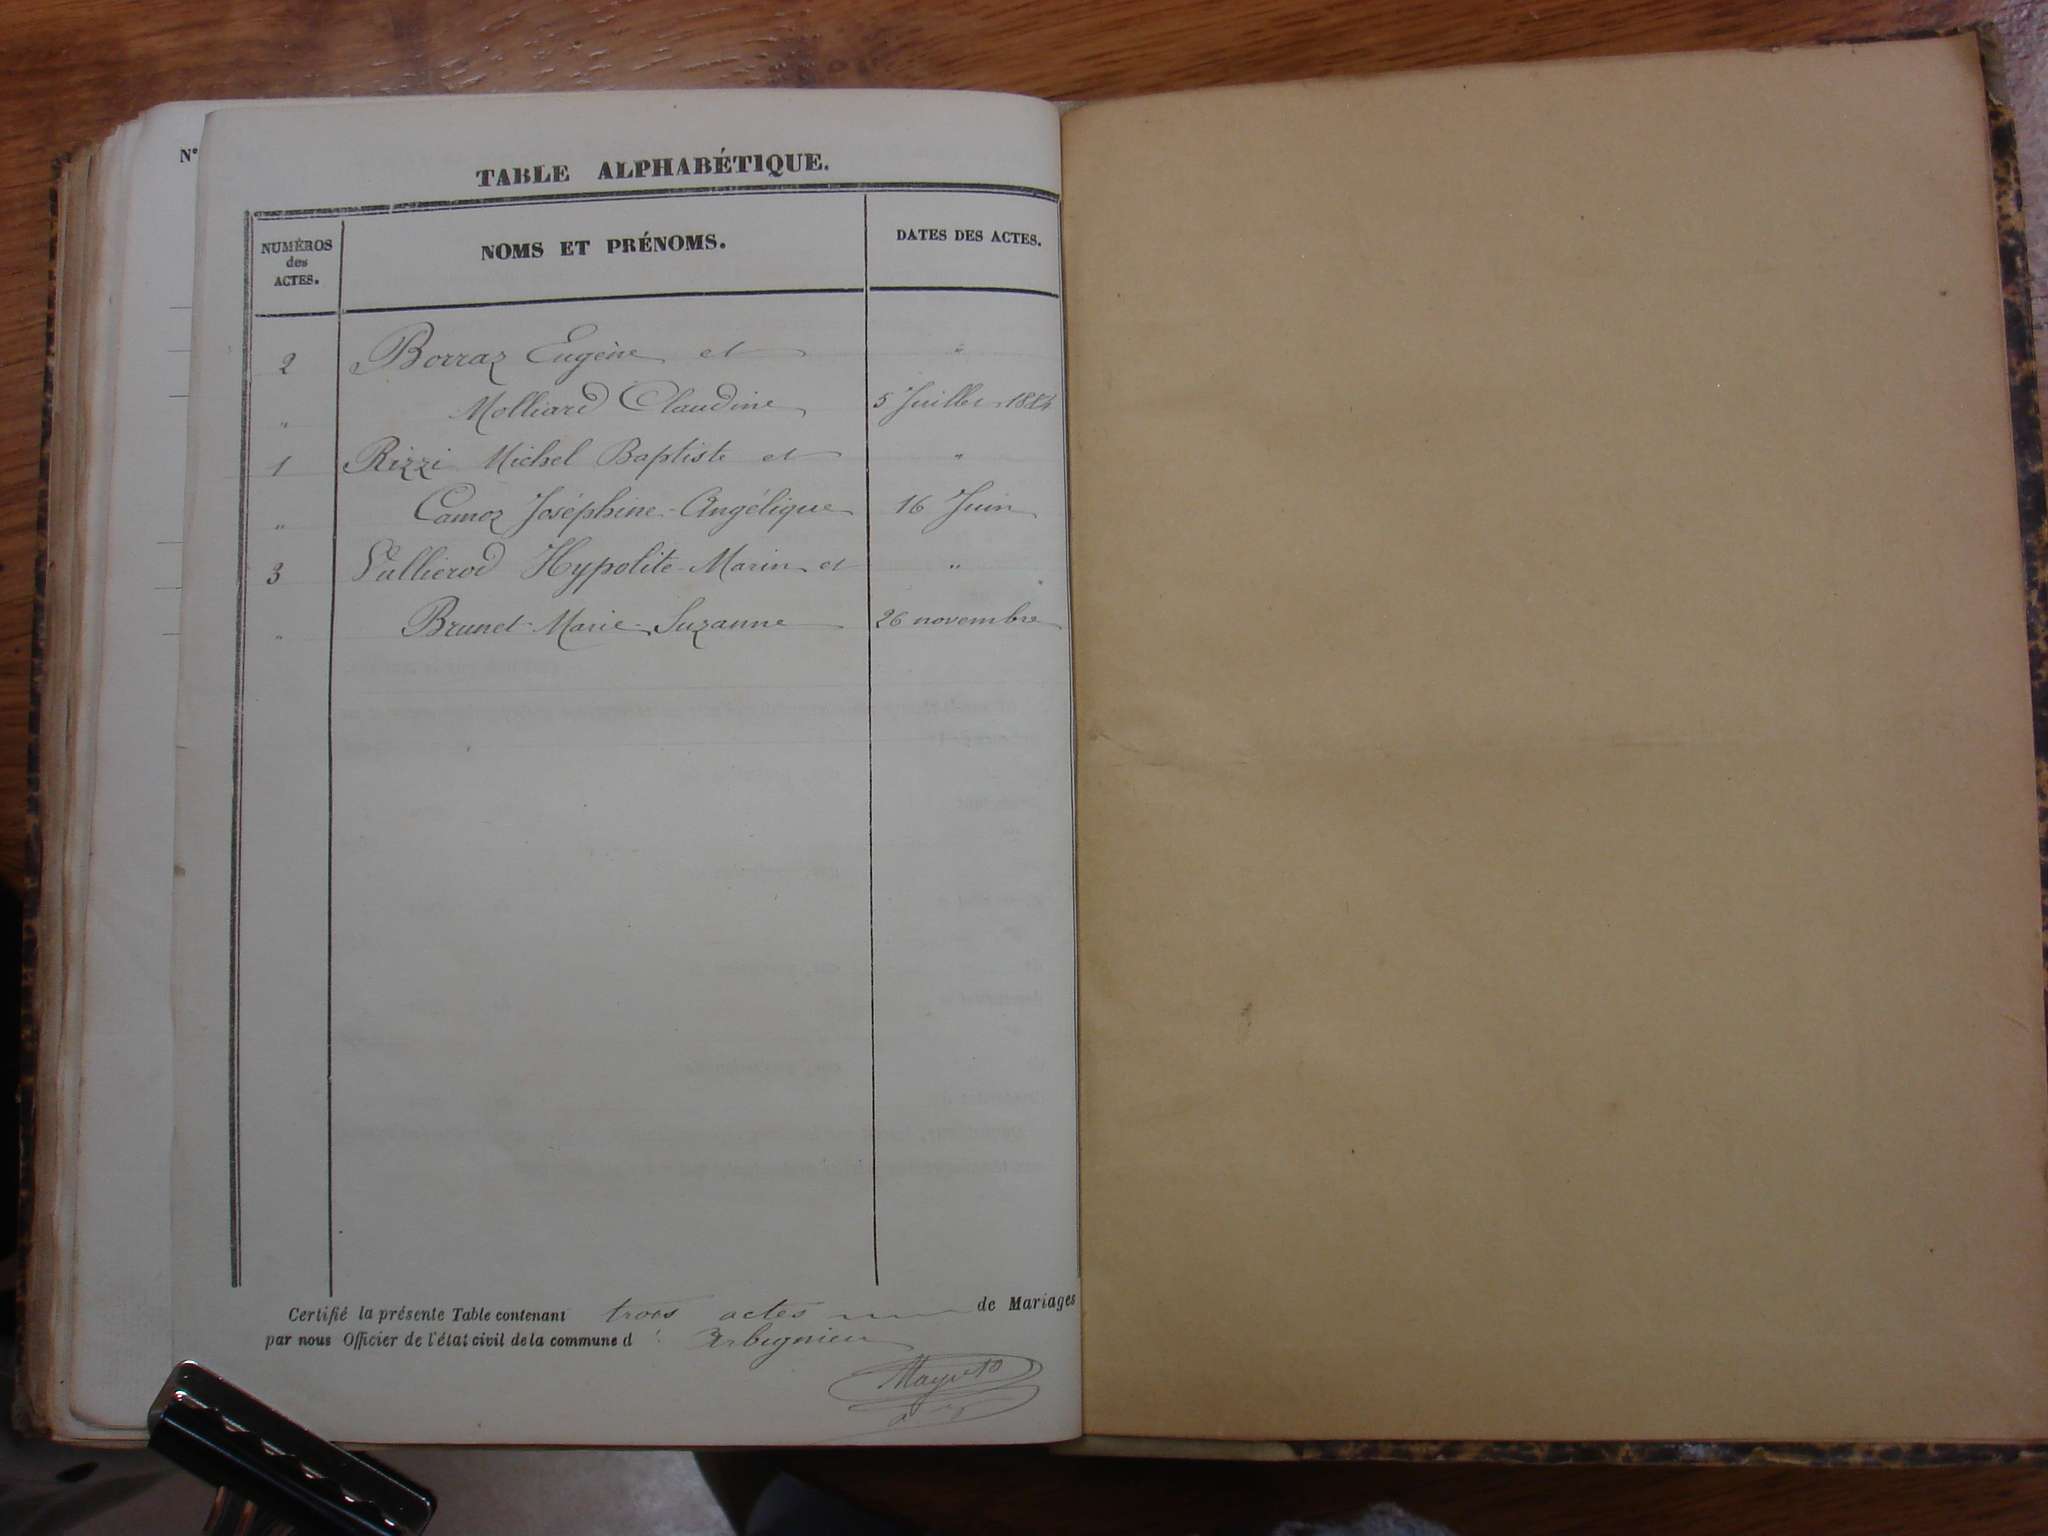 N°
TABLE ALPHABÉTIQUE.
NUMÉROS
des
ACTES.
NOMS ET PRÉNOMS.
DATES DES ACTES.
2 Borraz Eugène et "
" Molliard Claudine 5 Juillet 1884
1 Rizzi Michel Baptiste et "
" Camoz Joséphine-Angélique 16 Juin
3 Vullierod Hypolite-Marin et "
" Brunet-Marie-Suzanne 26 novembre
Certifié la présente Table contenant trois actes de Mariages
par nous Officier de l'état civil de la commune d' Arbignieu